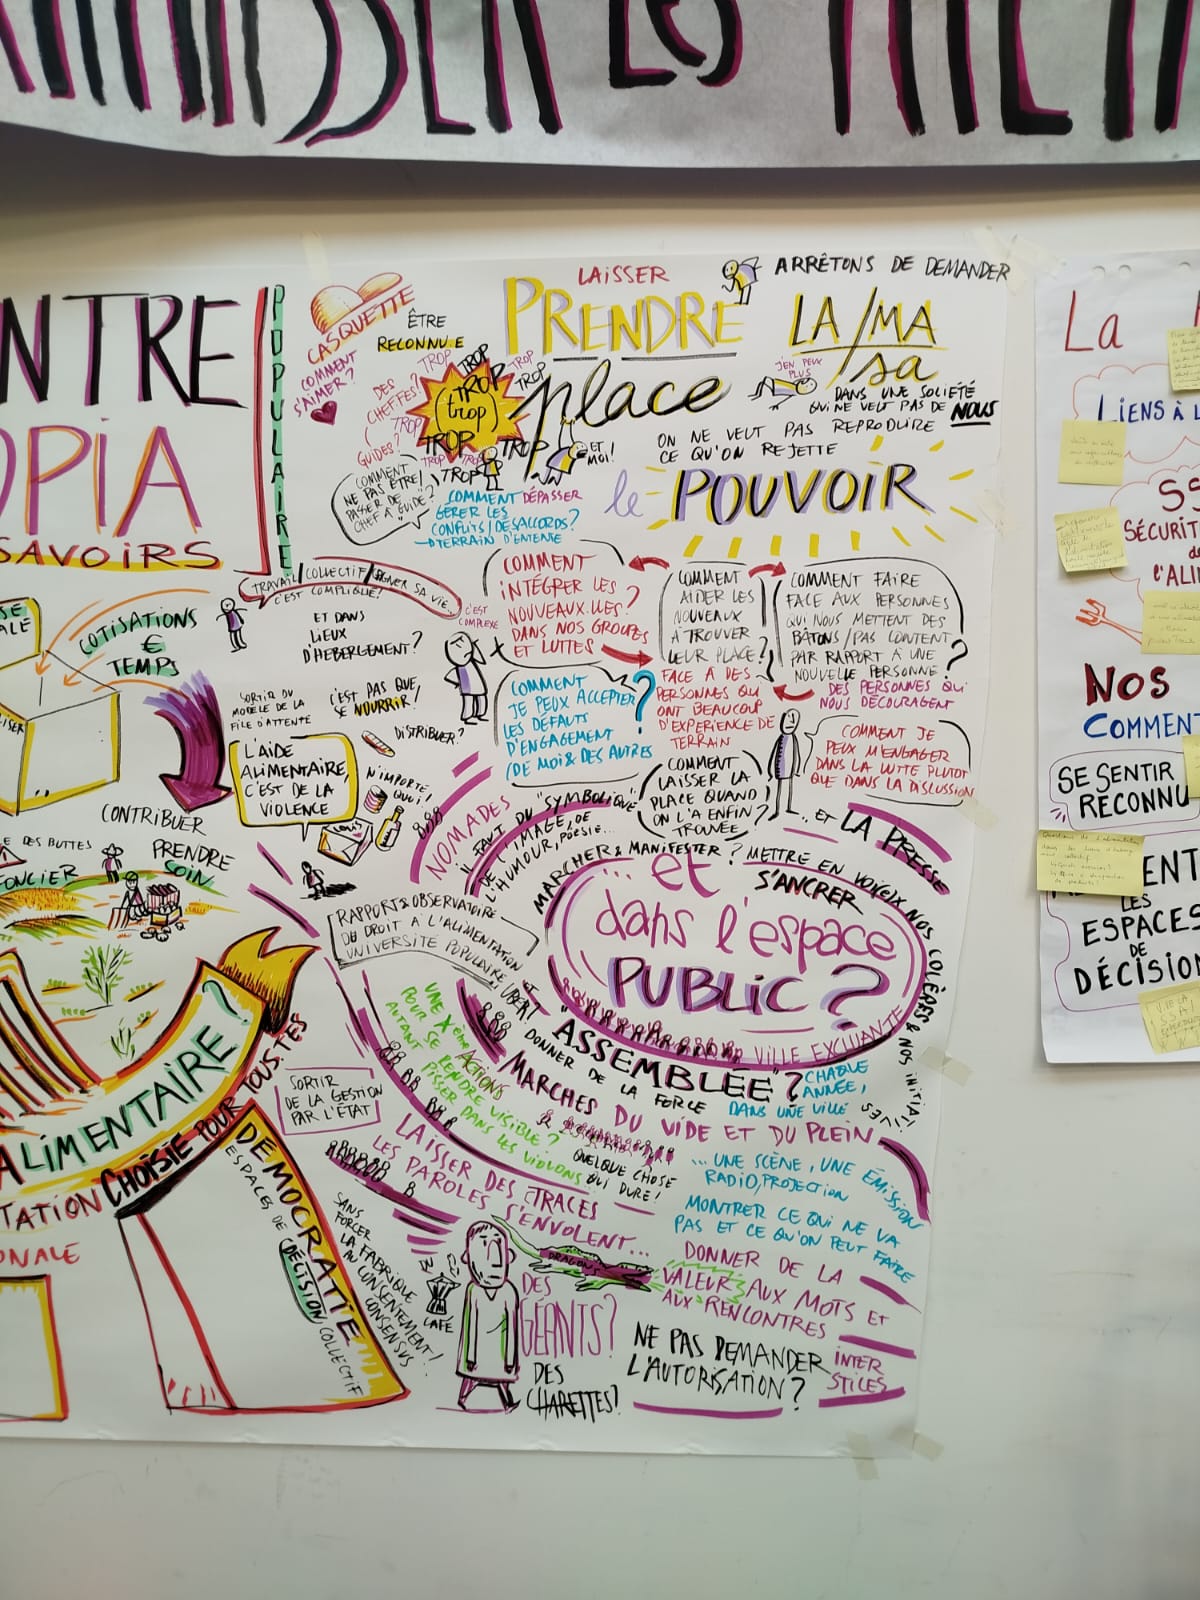 LES
NTRE
OPIA
SAVOIRS
POPULAIRE
COTISATIONS
€
TEMPS
CONTRIBUER
DES BUTTES
FONCIER
PRENDRE
SOIN
ALIMENTAIRE
CHOISIE POUR TOUS.TES
TATION
ONALE
DÉMOCRATIE
ESPACES DE DÉCISION COLLECTIF
CASQUETTE
COMMENT
S'AIMER?
ÊTRE
RECONNU.E
DES
CHEFFES?
GUIDES?
TROP
TROP
TROP
TROP
TROP
(trop)
TROP
TROP
TROP
TROP
TROP
ET
MOI!
COMMENT
NE PAS ÊTRE/
PASSER DE
CHEF À GUIDE?
COMMENT DÉPASSER
GÉRER LES
CONFLITS/DÉSACCORDS?
TERRAIN D'ENTENTE
LAISSER
PRENDRE
place
ARRÊTONS DE DEMANDER
LA/MA
sa
J'EN PEUX
PLUS
DANS UNE SOCIÉTÉ
QUI NE VEUT PAS DE NOUS
ON NE VEUT PAS REPRODUIRE
CE QU'ON REJETTE
le POUVOIR
TRAVAIL/COLLECTIF/GAGNER SA VIE,
C'EST COMPLIQUÉ!
C'EST
COMPLEXE
ET DANS
LIEUX
D'HEBERGEMENT?
COMMENT
INTÉGRER LES
NOUVEAUX.LLES?
DANS NOS GROUPES
ET LUTTES
COMMENT
AIDER LES
NOUVEAUX
À TROUVER
LEUR PLACE?
FACE À DES
PERSONNES QUI
ONT BEAUCOUP
D'EXPÉRIENCE DE
TERRAIN
COMMENT FAIRE
FACE AUX PERSONNES
QUI NOUS METTENT DES
BÂTONS/PAS CONTENT
PAR RAPPORT À UNE
NOUVELLE PERSONNE?
DES PERSONNES QUI
NOUS DÉCOURAGENT
COMMENT
JE PEUX ACCEPTER
LES DÉFAUTS
D'ENGAGEMENT
(DE MOI & DES AUTRES
?
COMMENT JE
PEUX M'ENGAGER
DANS LA LUTTE PLUTÔT
QUE DANS LA DISCUSSION
COMMENT
LAISSER LA
PLACE QUAND
ON L'A ENFIN
TROUVÉE?
SORTIR DU
MODÈLE DE LA
FILE D'ATTENTE
C'EST PAS QUE
SE NOURRIR!
DISTRIBUER?
L'AIDE
ALIMENTAIRE,
C'EST DE LA
VIOLENCE
N'IMPORTE
QUOI!
NOMADES
IL FAUT DU "SYMBOLIQUE"
DE L'IMAGE, DE
L'HUMOUR, POÉSIE...
MARCHER & MANIFESTER?
... ET LA PRESSE
METTRE EN VOIE/X NOS COLÈRES & NOS INITIATIVES
S'ANCRER
... et
dans l'espace
PUBLIC?
VILLE EXCLUANTE
RAPPORT & OBSERVATOIRE
DU DROIT À L'ALIMENTATION
UNIVERSITÉ POPULAIRE
"ASSEMBLÉE"?
DONNER DE LA FORCE
CHAQUE
ANNÉE,
DANS UNE VILLE
MARCHES DU VIDE ET DU PLEIN
UNE Xème ACTIONS
POUR SE RENDRE VISIBLE?
AUTANT PISSER DANS LES VIOLONS
QUELQUE CHOSE
QUI DURE!
SORTIR
DE LA GESTION
PAR L'ÉTAT
LAISSER DES TRACES
LES PAROLES S'ENVOLENT...
... UNE SCÈNE, UNE ÉMISSION
RADIO, PROJECTION
MONTRER CE QUI NE VA
PAS ET CE QU'ON PEUT FAIRE
DONNER DE LA
VALEUR AUX MOTS ET
AUX RENCONTRES
SANS
FORCER
LA FABRIQUE
AU CONSENTEMENT!
CONSENSUS
CAFÉ
DRAGONS
DES
GÉANTS?
DES
CHARETTES?
NE PAS DEMANDER
L'AUTORISATION?
INTER
STICES
La
LIENS À L
SS
SÉCURIT
de
l'ALI
NOS
COMMENT
SE SENTIR
RECONNU
ENT
LES
ESPACES
DE
DÉCISION